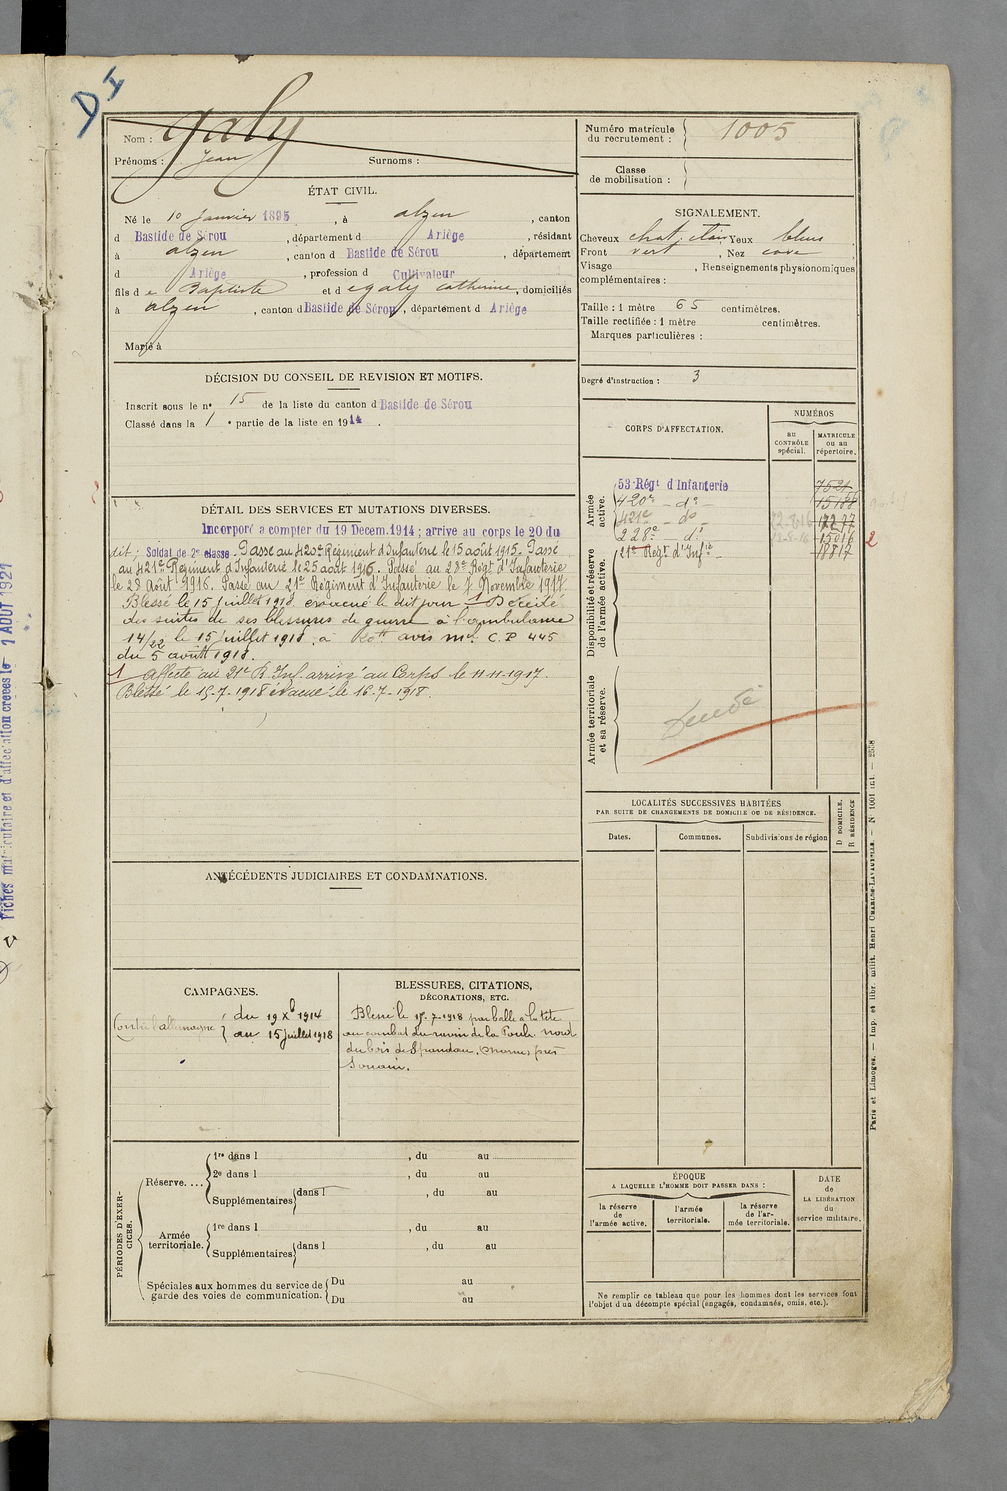 D I
Nom : Galy
Prénoms : Jean Surnoms :
Numéro matricule
du recrutement : 1005
Classe
de mobilisation :
ÉTAT CIVIL.
Né le 10 janvier 1895, à alzen, canton
d Bastide de Sérou, département d Ariège, résidant
à alzen, canton d Bastide de Sérou, département
d Ariège, profession d Cultivateur
fils de Baptiste et de galy catherine, domiciliés
à alzen, canton d Bastide de Sérou, département d Ariège
Marié à
SIGNALEMENT.
Cheveux chat. clair Yeux bleus
Front vert, Nez cave
Visage , Renseignements physionomiques
complémentaires :
Taille : 1 mètre 65 centimètres.
Taille rectifiée : 1 mètre centimètres.
Marques particulières :
Degré d'instruction : 3
DÉCISION DU CONSEIL DE REVISION ET MOTIFS.
Inscrit sous le n° 15 de la liste du canton d Bastide de Sérou
Classé dans la 1 e partie de la liste en 1914.
CORPS D'AFFECTATION.
NUMÉROS
au
CONTRÔLE
spécial.
MATRICULE
ou au
répertoire.
Armée
active.
53 Régt d'Infanterie 7521
420e - do - 15188
421e - do - 22.8.16 12277
228e - do 15016
21e Régt d'Infie 18817
2
Disponibilité et réserve
de l'armée active.
Armée territoriale
et sa réserve.
DÉTAIL DES SERVICES ET MUTATIONS DIVERSES.
Incorporé a compter du 19 Decem.1914 ; arrive au corps le 20 du
dit ; Soldat de 2e classe - Passé au 420e Régiment d'Infanterie le 15 août 1915. Passé
au 421e Régiment d'Infanterie le 25 août 1916. Passé au 28e Régt d'Infanterie
le 28 Août 1916. Passé au 21e Régiment d'Infanterie le 7 Novembre 1917
Blessé le 15 juillet 1918, évacué le dit jour 1 Décédé
des suites de ses blessures de guerre à l'ambulance
14/22 le 15 juillet 1918, a avis mel C.P 445
du 5 août 1918.
1 affecté au 21e R. Inf. arrivé au Corps le 11-11-1917.
Blessé le 15-7-1918 évacué le 16-7-1918.
LOCALITÉS SUCCESSIVES HABITÉES
PAR SUITE DE CHANGEMENTS DE DOMICILE OU DE RÉSIDENCE.
D DOMICILE.
R RÉSIDENCE
Dates. Communes. Subdivisions de région
ANTÉCÉDENTS JUDICIAIRES ET CONDAMNATIONS.
CAMPAGNES.
Contre l'allemagne du 19 Xb 1914
au 15 juillet 1918
BLESSURES, CITATIONS,
DÉCORATIONS, ETC.
Blessé le 15-7-1918 par balle a la tête
au combat du ravin de la Poule. nord
du bois de Spandau, (Marne) près
Souain.
PÉRIODES D'EXERCICES.
Réserve....
1re dans l , du au
2e dans l , du au
Supplémentaires dans l , du au
Armée
territoriale.
1re dans l , du au
Supplémentaires dans l , du au
Spéciales aux hommes du service de
garde des voies de communication.
Du au
Du au
ÉPOQUE
A LAQUELLE L'HOMME DOIT PASSER DANS :
la réserve
de
l'armée active.
l'armée
territoriale.
la réserve
de l'ar-
mée territoriale.
DATE
de
LA LIBÉRATION
du
service militaire.
Ne remplir ce tableau que pour les hommes dont les services font
l'objet d'un décompte spécial (engagés, condamnés, omis, etc.).
Paris et Limoges. — Imp. et libr. milit. Henri CHARLES-LAVAUZELLE. — N° 1001 int. — 2558
Fiches matriculaire et d'affectation créées le 1 AOUT 1921